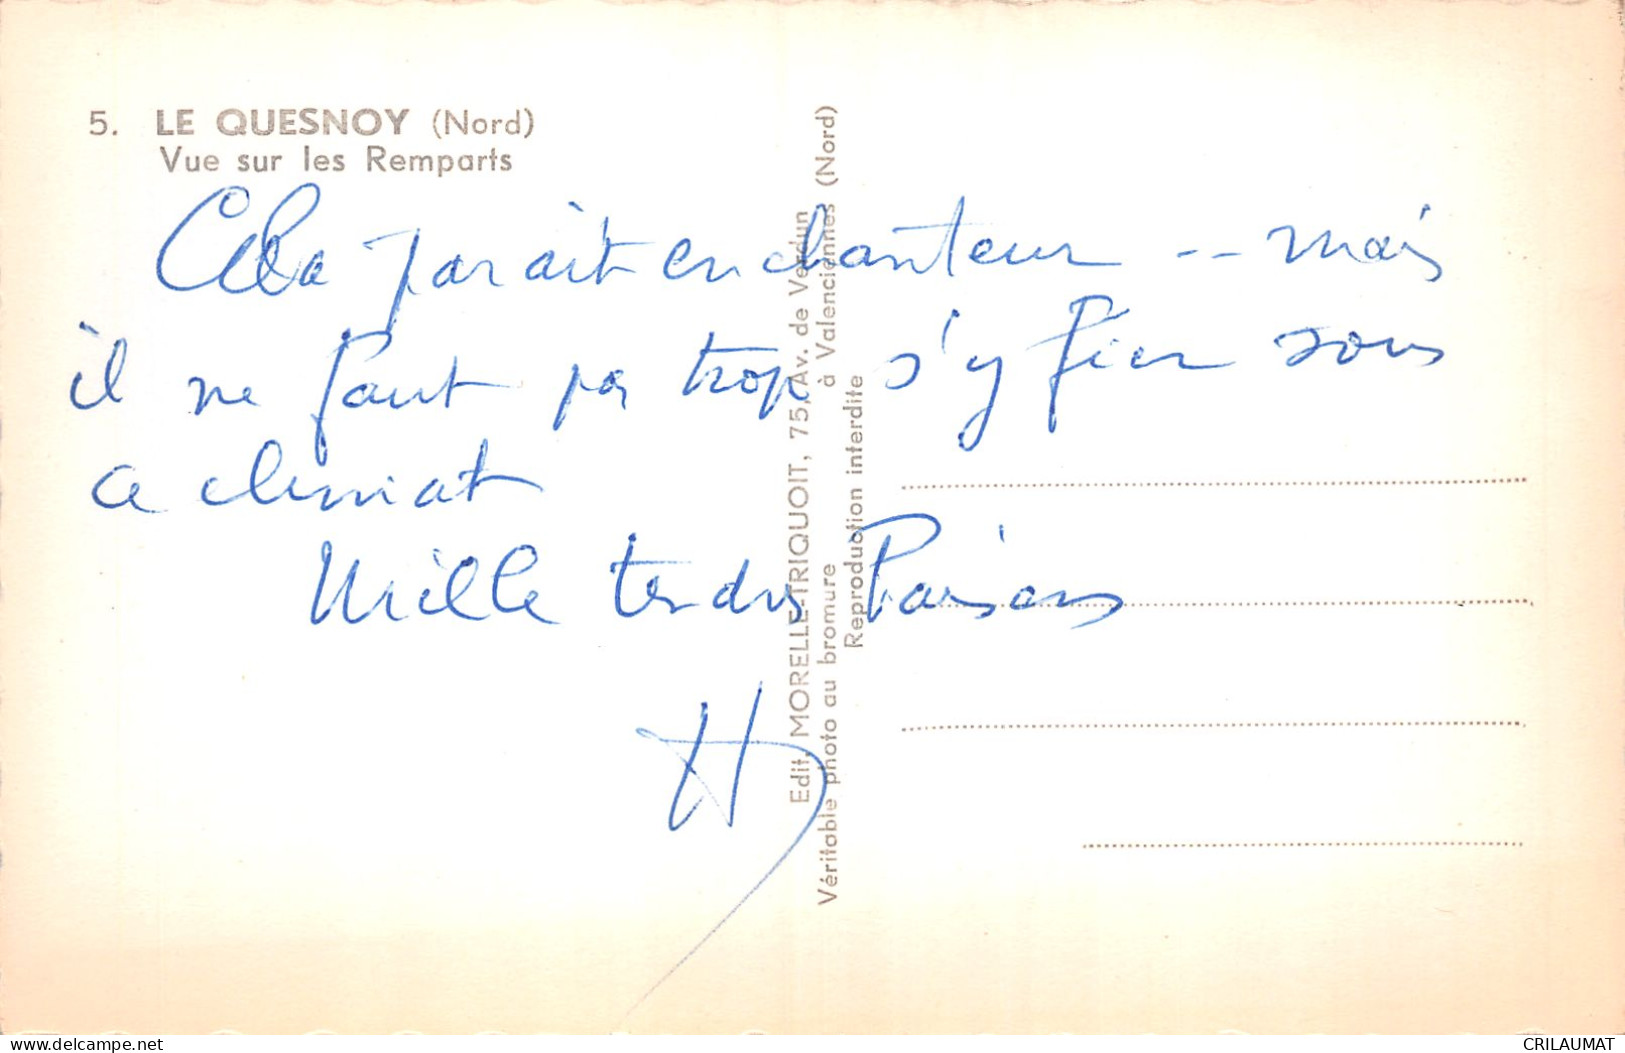 5. LE QUESNOY (Nord)
Vue sur les Remparts
Cela parait enchanteur -- mais
il ne faut pas trop s'y fier sous
ce climat
Mille tendres Baisers
H
Edit. MORELLE-TRIQUOIT, 75, Av. de Verdun
Véritable photo au bromure à Valenciennes (Nord)
Reproduction interdite
delcampe.net
CRILAUMAT